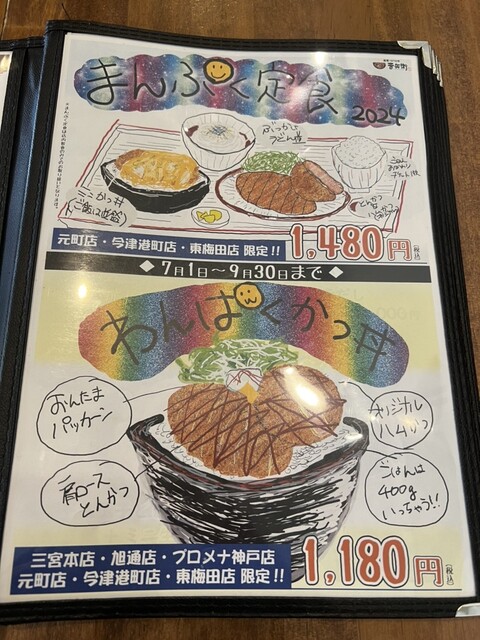 吉兵衛
まんぷく定食
2024
ぶっかけ
うどん
ミニかつ丼
(ご飯は
とんかつ
元町店・今津港町店・東梅田店 限定!!
1,480円
税込
◆ 7月1日～9月30日まで ◆
わんぱくかつ丼
おんたま
パッカーン
オリジナル
ハムカツ
肩ロース
とんかつ
ごはんは
400g
いっちゃう!!
三宮本店・旭通店・プロメナ神戸店
元町店・今津港町店・東梅田店 限定!!
1,180円
税込